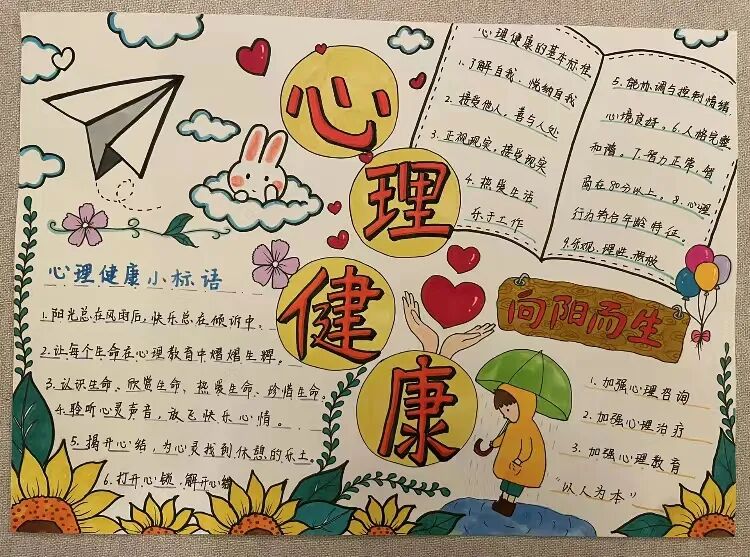 心理健康
心理健康的基本标准
1.了解自我、悦纳自我
2.接受他人，喜与人处
3.正视现实，接受现实
4.热爱生活
乐于工作
5.能协调与控制情绪，
心境良好。6.人格完整
和谐。7.智力正常，智
商在80分以上。8.心理
行为符合年龄特征。
9.乐观，理性，
心理健康小标语
1.阳光总在风雨后，快乐总在倾诉中。
2.让每个生命在心理教育中熠熠生辉。
3.认识生命、欣赏生命、热爱生命、珍惜生命。
4.聆听心灵声音，放飞快乐心情。
5.揭开心结，为心灵找到休憩的乐土。
6.打开心锁，解开心
向阳而生
1.加强心理咨询
2.加强心理治疗
3.加强心理教育
"以人为本"